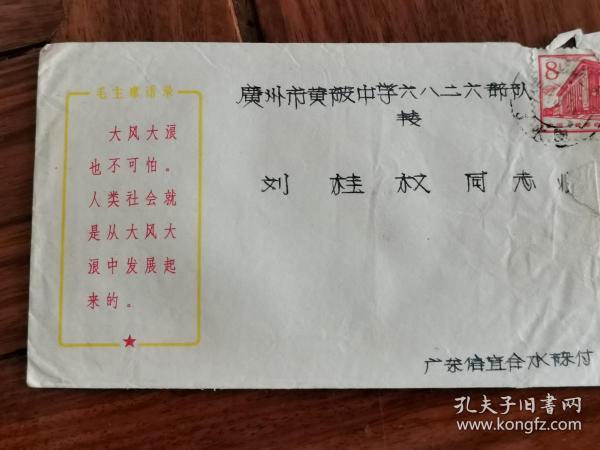 毛主席语录
大风大浪
也不可怕。
人类社会就
是从大风大
浪中发展起
来的。
廣州市黄陂中学六八二六部队
陂
刘桂权同志收
广东信宜合水 付
8
孔夫子旧书网
www.kongfz.com